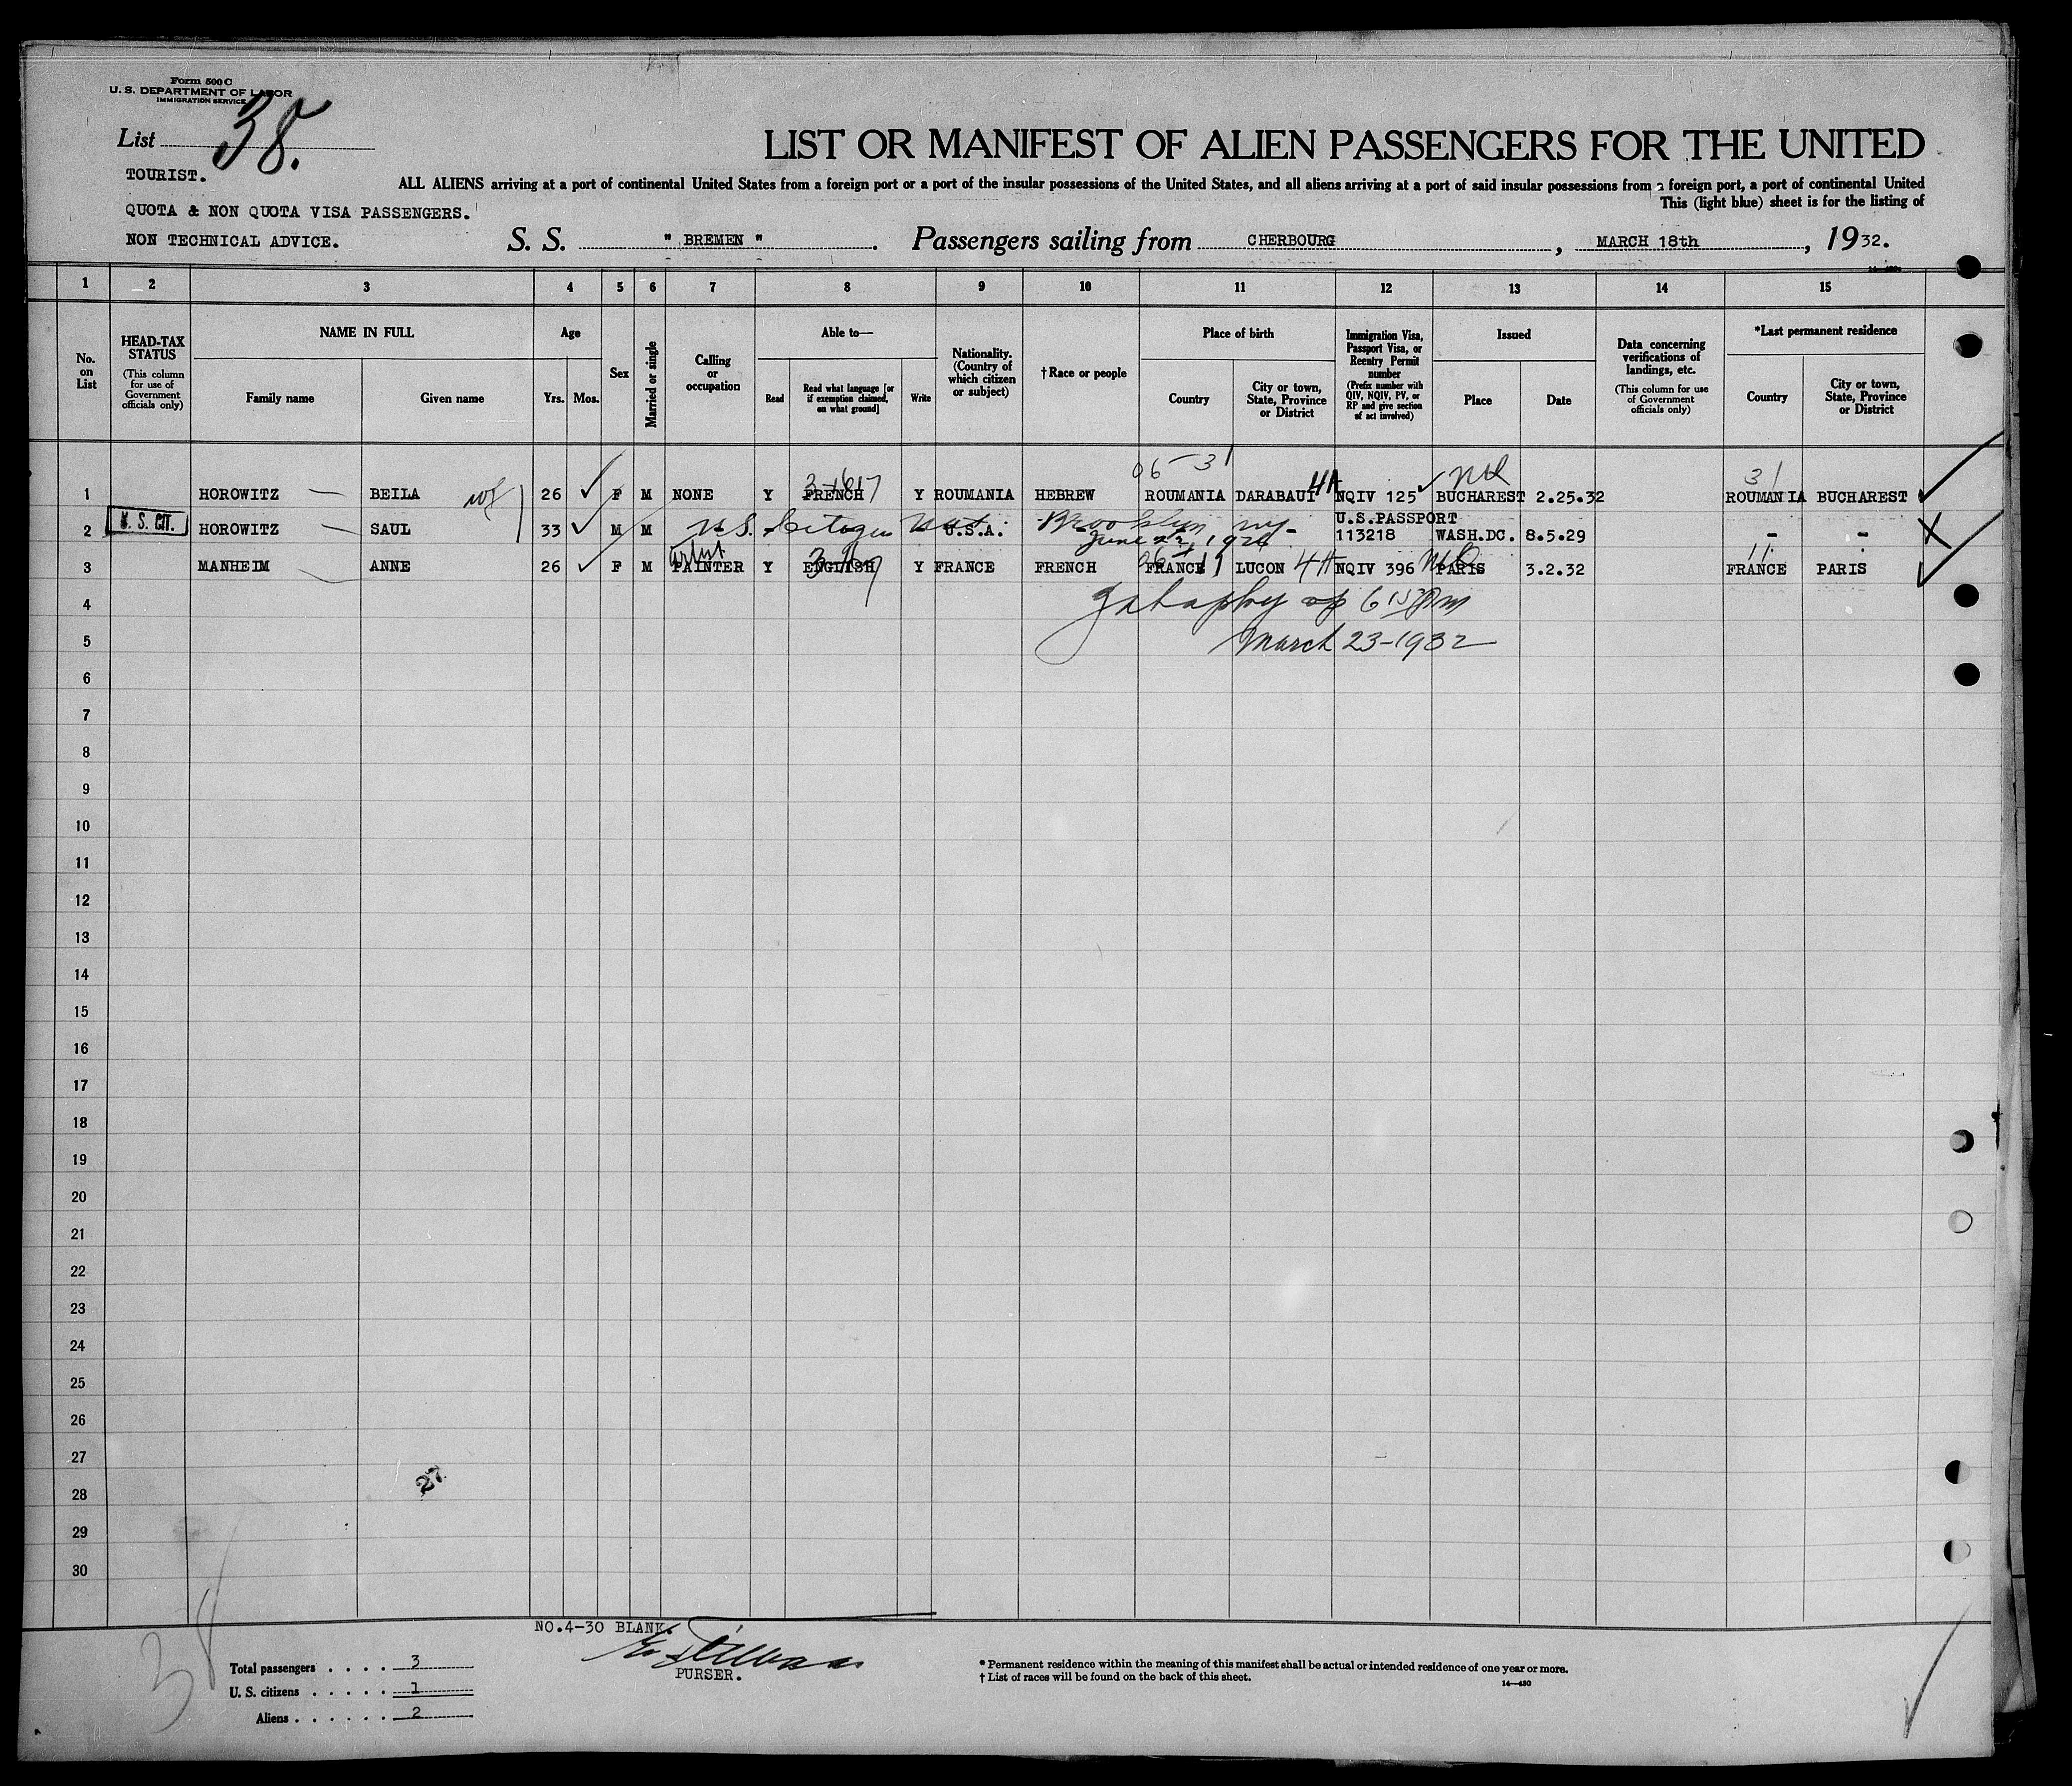 Form 500 C
U. S. DEPARTMENT OF LABOR
IMMIGRATION SERVICE
List 38.
LIST OR MANIFEST OF ALIEN PASSENGERS FOR THE UNITED
TOURIST.
ALL ALIENS arriving at a port of continental United States from a foreign port or a port of the insular possessions of the United States, and all aliens arriving at a port of said insular possessions from a foreign port, a port of continental United
QUOTA & NON QUOTA VISA PASSENGERS.
This (light blue) sheet is for the listing of
NON TECHNICAL ADVICE.
S. S. " BREMEN " . Passengers sailing from CHERBOURG , MARCH 18th , 1932.
1 2 3 4 5 6 7 8 9 10 11 12 13 14 15
No. on List
HEAD-TAX STATUS (This column for use of Government officials only)
NAME IN FULL
Family name Given name
Age
Yrs. Mos.
Sex
Married or single
Calling or occupation
Able to—
Read Read what language [or if exemption claimed, on what ground] Write
Nationality. (Country of which citizen or subject)
†Race or people
Place of birth
Country City or town, State, Province or District
Immigration Visa, Passport Visa, or Reentry Permit number (Prefix number with QIV, NQIV, PV, or RP and give section of act involved)
Issued
Place Date
Data concerning verifications of landings, etc. (This column for use of Government officials only)
*Last permanent residence
Country City or town, State, Province or District
06-31
31
1 HOROWITZ BEILA wf 26 F M NONE Y FRENCH Y ROUMANIA HEBREW ROUMANIA DARABAUI 4A NQIV 125 BUCHAREST 2.25.32 ROUMANIA BUCHAREST
U.S.PASSPORT
2 U. S. CIT. HOROWITZ SAUL 33 M M U.S. Citizen U.S.A. Brooklyn ny- 113218 WASH.DC. 8.5.29 - -
June 22, 19
Artist
11
3 MANHEIM ANNE 26 F M PAINTER Y ENGLISH Y FRANCE FRENCH FRANCE LUCON 4A NQIV 396 PARIS 3.2.32 FRANCE PARIS
4
5 March 23-1932
6
7
8
9
10
11
12
13
14
15
16
17
18
19
20
21
22
23
24
25
26
27
27
28
29
30
NO.4-30 BLANK.
38
PURSER.
Total passengers . . . . 3
U. S. citizens . . . . . 1
Aliens . . . . . . 2
* Permanent residence within the meaning of this manifest shall be actual or intended residence of one year or more.
† List of races will be found on the back of this sheet.
14—430